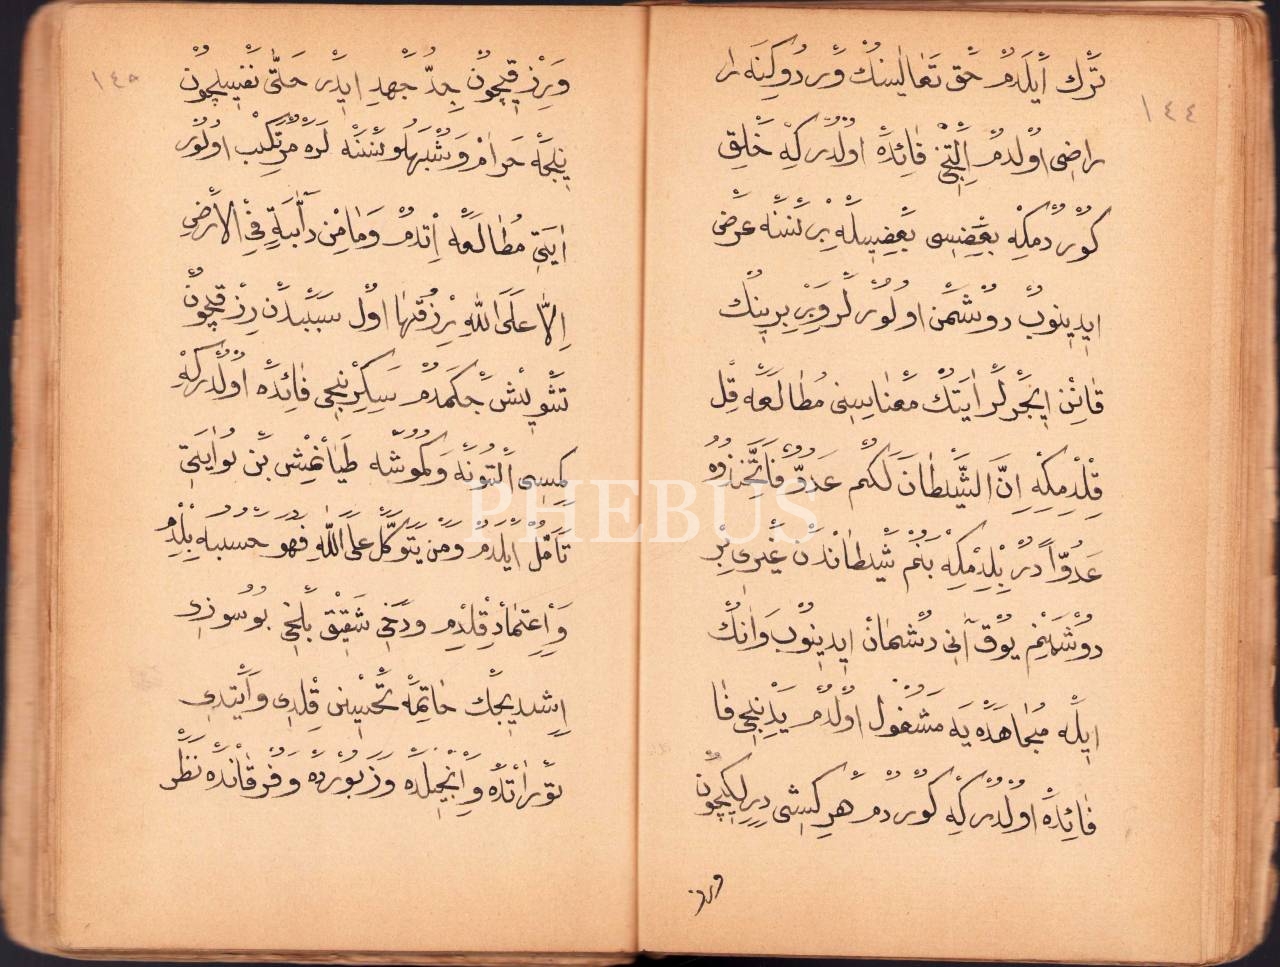 ١٤٤
ترك ايلدم حق تعالينك ويردوكنه
راضى اولدم التنجى فائده اولدر كه خلق
كوردمكه بعضسى بعضيله بر نسنه عرض
ايدينوب دوشمن اولورلر وبر برينك
قانن ايچرلر ايتك معناسنى مطالعه قل
قلدمكه اِنَّ الشَّيْطَانَ لَكُمْ عَدُوٌّ فَاتَّخِذُوهُ
عَدُوّاً در بلدمكه بنم شيطاندن غيرى بر
دوشمنم يوق آنى دشمان ايدينوب وانك
ايله مجاهده يه مشغول اولدم يدنجى فا
فائده اولدر كه كوردم هر كشى ديرلكچون
ورز
١٤٥
ورزقيچون جد جهد ايدر حتى نفسيچون
نيچه حرام وشبهلو نسنه لره مرتكب اولور
ايتى مطالعه اتدم وَمَا مِنْ دَآبَّةٍ فِي الْاَرْضِ
اِلَّا عَلَى اللّٰهِ رِزْقُهَا اول سببدن رزقيچون
تشويش چكمدم سكزنجى فائده اولدركه
كمسى التونه وكموشه طيانمش بن بو ايتى
تأمل ايلدم وَمَنْ يَتَوَكَّلْ عَلَى اللّٰهِ فَهُوَ حَسْبُهُ بلدم
واعتماد قلدم ودخى شقيق بلخى بو سوزى
اشديجك خاتمه تحسين قلدى وايتدى
توراتده وانجيلده وزبورده وفرقانده نظر
PHEBUS